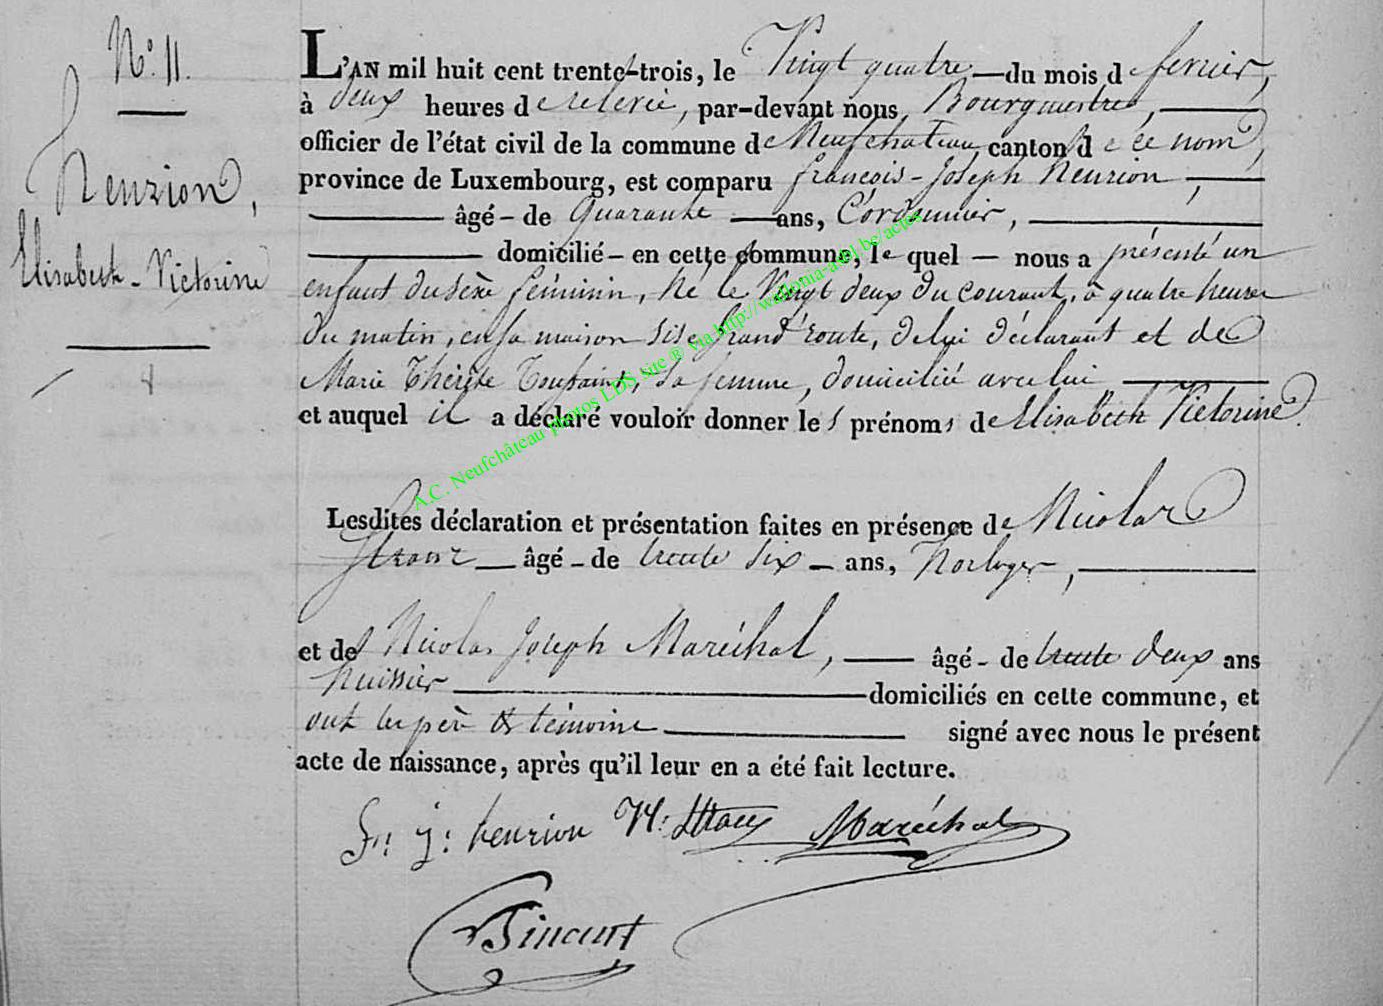 N.° 11.
henrion,
Elisabeth - Victorine
4
L'AN mil huit cent trente-trois, le Vingt quatre — du mois de fevrier,
à deux heures de relevée, par-devant nous, Bourgmestre,
officier de l'état civil de la commune de Neufchateau, canton de ce nom,
province de Luxembourg, est comparu françois - Joseph henrion,
âgé - de quarante — ans, Cordonnier,
domicilié - en cette commune, le quel — nous a présenté un
enfant du sèxe féminin, né le Vingt deux du courant, à quatre heures
du matin, en sa maison sise Grand'route, de lui déclarant et de
Marie Thérèse Toussaint, sa femme, domiciliée avec lui
et auquel il a déclaré vouloir donner les prénoms de Elisabeth Victorine.
Lesdites déclaration et présentation faites en présence de Nicolas
âgé - de trente six - ans, horloger,
et de Nicolas Joseph Maréchal, — âgé - de trente deux ans
huissier — domiciliés en cette commune, et
ont les père & témoins — signé avec nous le présent
acte de naissance, après qu'il leur en a été fait lecture.
f: j: henrion N: Maréchal
A.C. Neufchâteau photos LDS suc ® via http://wallonia-asbl.be/actes